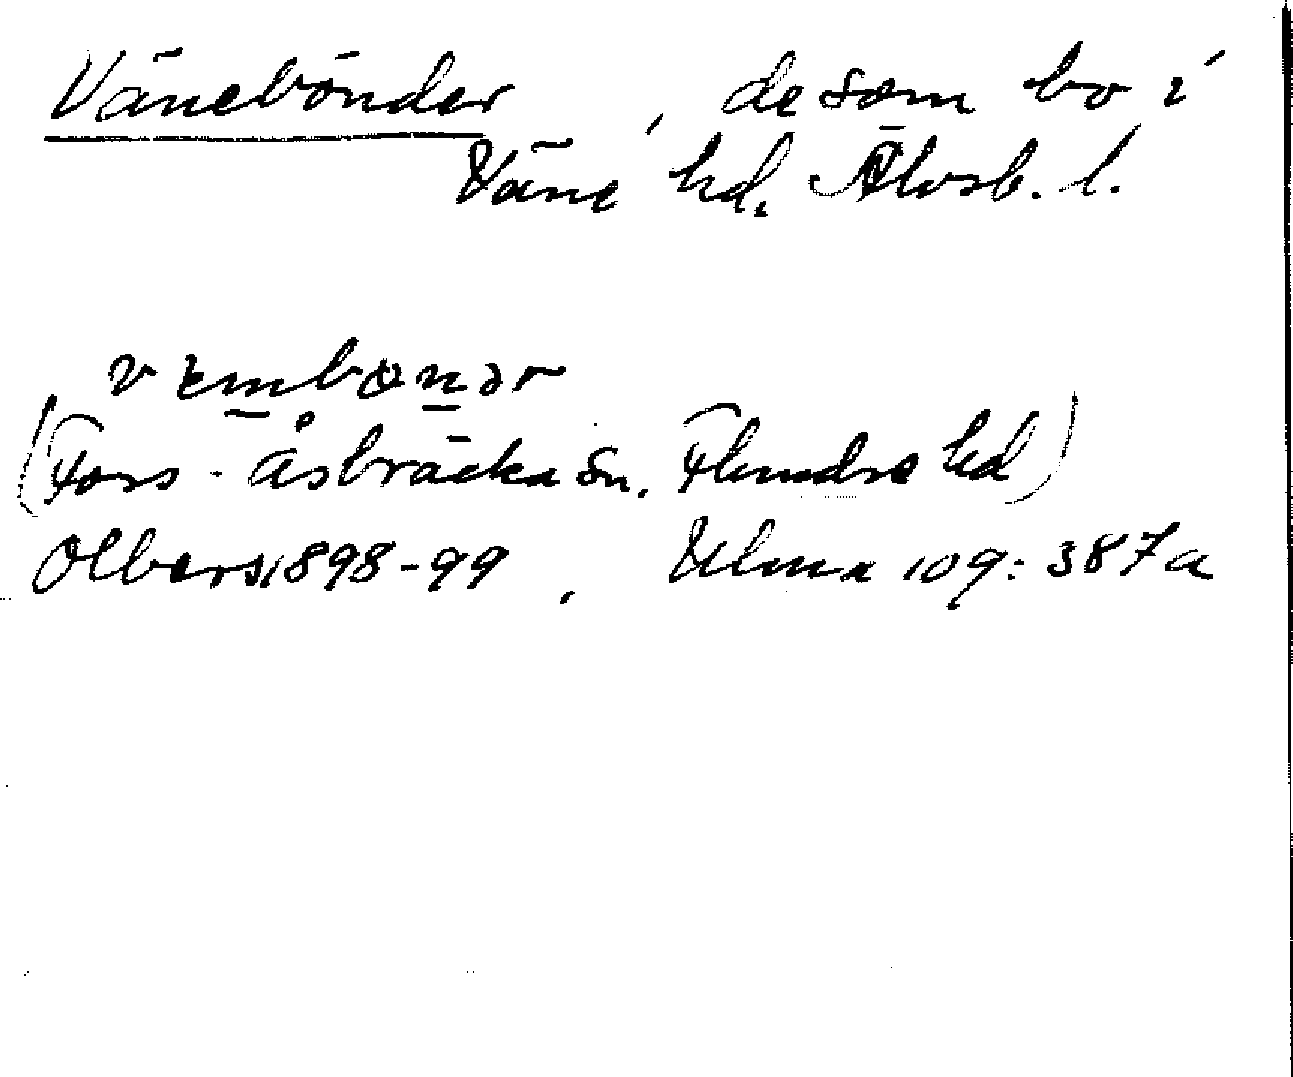 Vänebönder, de som bo i
Väne hd. Älvsb. l.
(Fors-Åsbräcka sn. Flundre hd)
Olbers 1898-99, Ulma 109:387a